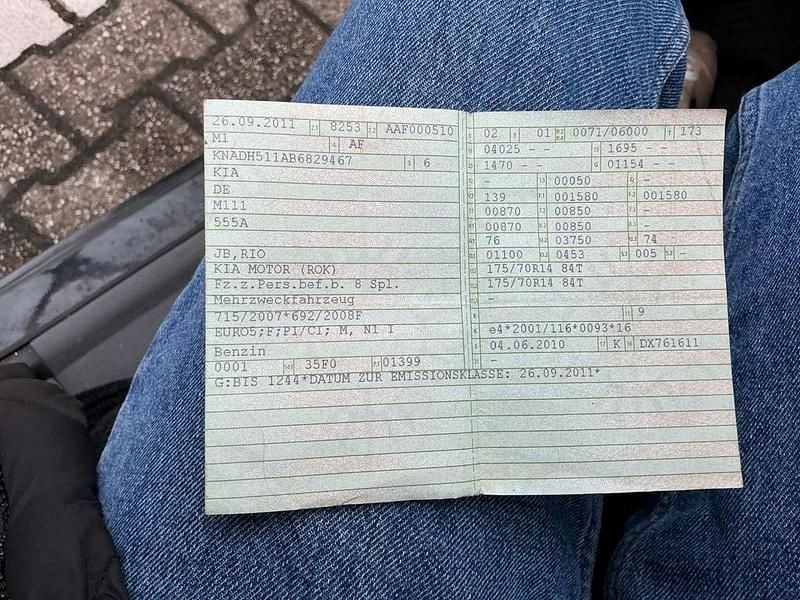 26.09.2011 8253 AAF000510
M1 AF
KNADH511AB6829467 6
KIA
DE
M111
555A
JB,RIO
KIA MOTOR (ROK)
Fz.z.Pers.bef.b. 8 Spl.
Mehrzweckfahrzeug
715/2007*692/2008F
EURO5;F;PI/CI; M, N1 I
Benzin
0001 35F0 01399
G:BIS 1244*DATUM ZUR EMISSIONSKLASSE: 26.09.2011*
02 01 0071/06000 173
04025 - - 1695 - -
1470 - - 01154 - -
- 00050 -
139 001580 001580
00870 00850 -
00870 00850 -
76 03750 74
01100 0453 005 -
175/70R14 84T
175/70R14 84T
-
9
e4*2001/116*0093*16
04.06.2010 K DX761611
-